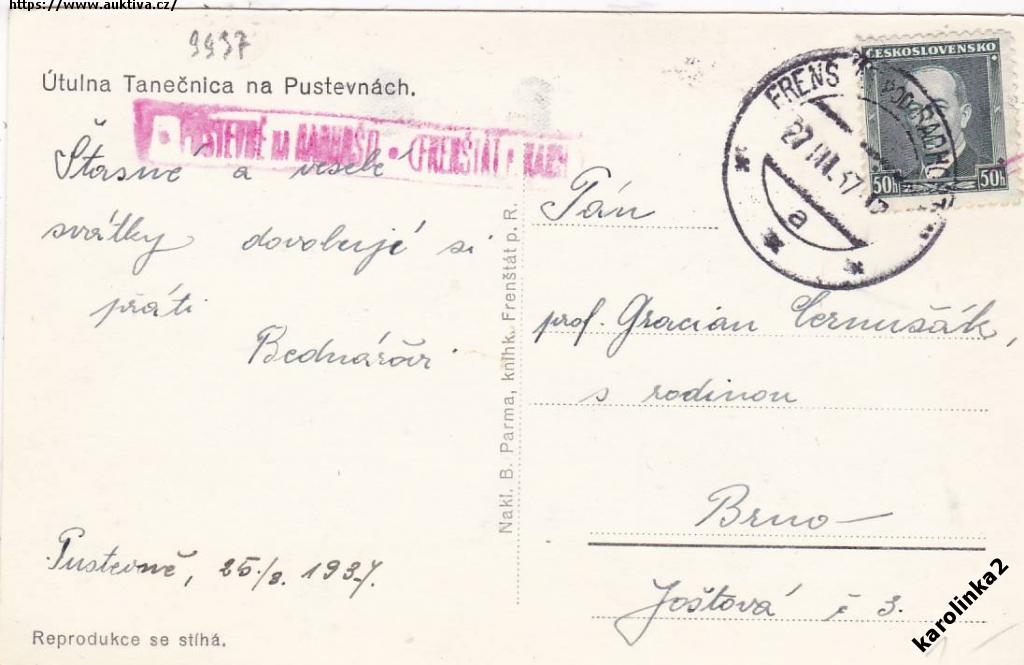 https://www.auktiva.cz/
9937
Útulna Tanečnica na Pustevnách.
PUSTEVNĚ NA RADHOŠTI • (FRENŠTÁT •
Štasné a veselé
svátky dovolují si
přáti
Bednářovi
Pustevně, 25./3. 1937.
Reprodukce se stíhá.
Nakl. B. Parma, knihk. Frenštát p. R.
ČESKOSLOVENSKO
50h 50h
FRENŠ POD RADHO
27 III. 37.
a
Pán
prof. Gracian Cernušák,
s rodinou
Brno
Joštová č 3.
karolinka2